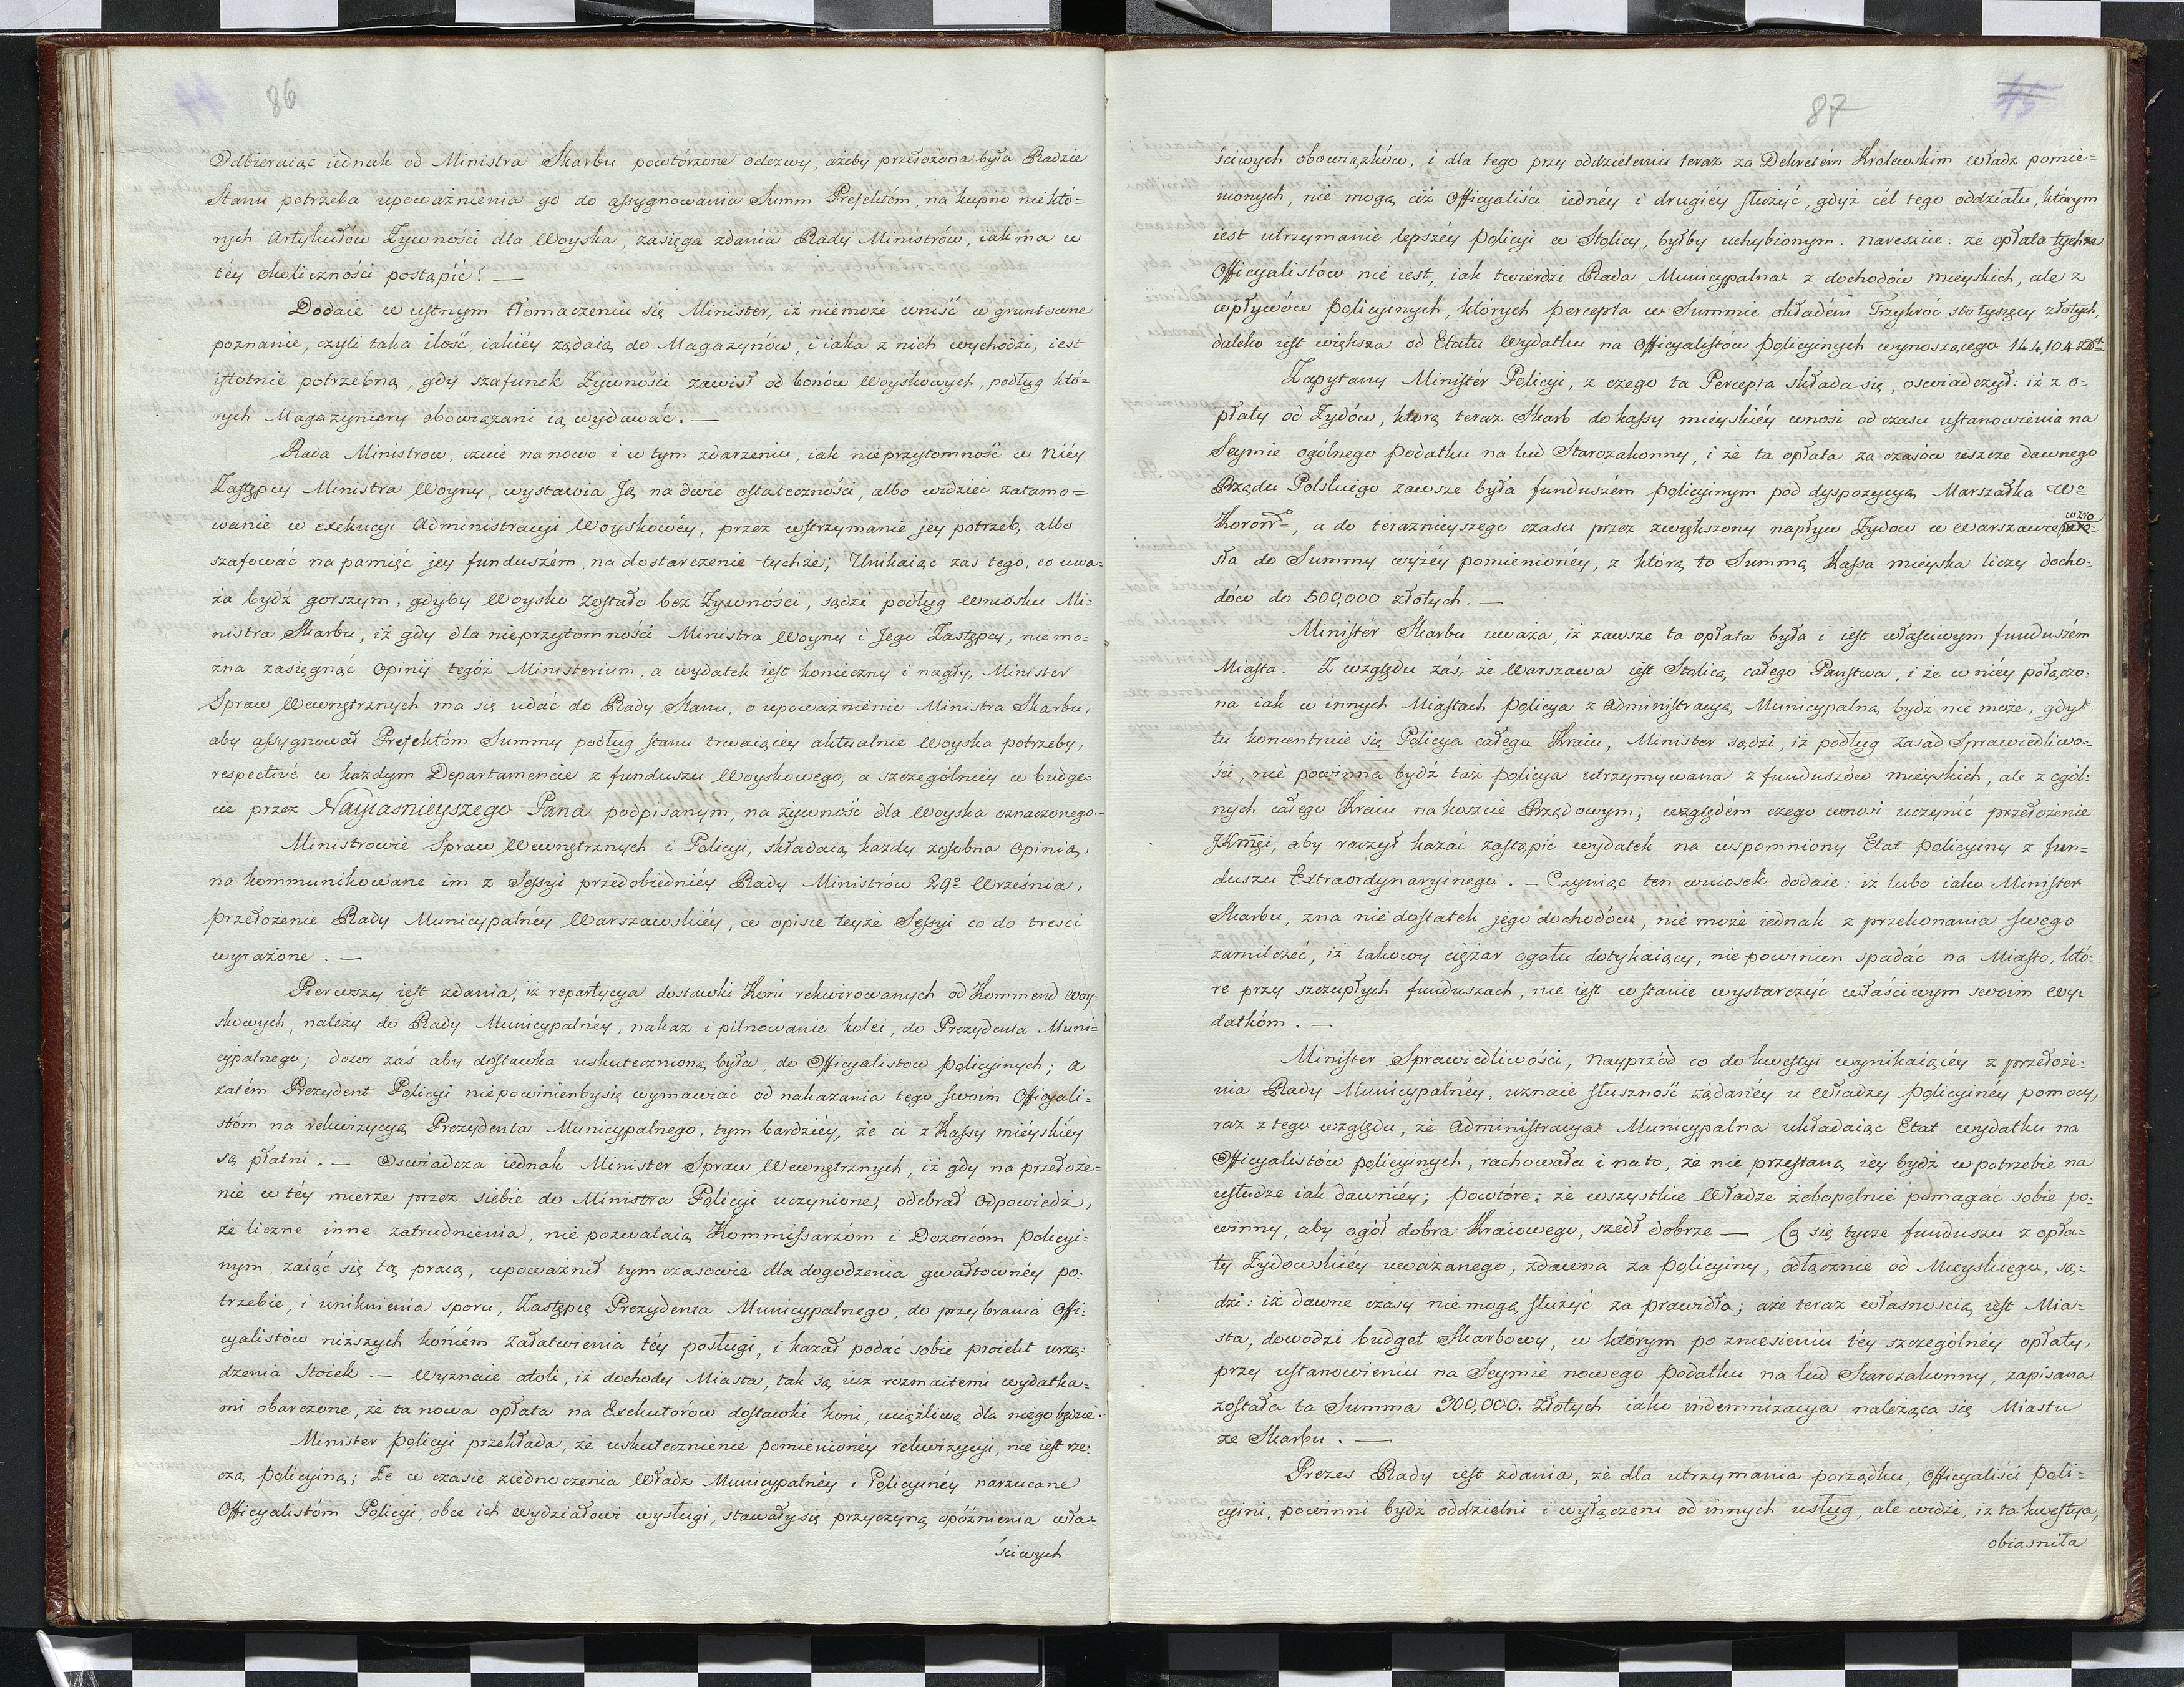 44 86
Odbieraiąc iednak od Ministra Skarbu powtórzone odezwy, ażeby przedłożona była Radzie
Stanu potrzeba upoważnienia go do assygnowania Summ Prefektóm, na kupno niektó=
rych Artykułów Żywności dla Woyska, zasięga zdania Rady Ministrów, iak ma w
téy okoliczności postąpić? —
Dodaie w ustnym tłomaczeniu się Minister, iż niemoże wniść w gruntowne
poznanie, czyli taka ilość, iakiéy żądaią do Magazynów, i iaka z nich wychodzi, iest
istotnie potrzebną, gdy szafunek Żywności zawisł od bonów Woyskowych, podług któ=
rych Magazyniery obowiązani ią wydawać. —
Rada Ministrow, czuie na nowo i w tym zdarzeniu, iak nieprzytomność w Niéy
Zastępcy Ministra Woyny, wystawia Ją na dwie ostateczności, albo widzieć zatamo=
wanie w exekucyi Administracyi Woyskowéy, przez wstrzymanie jey potrzeb, albo
szafować na pamięć jey funduszém, na dostarczenie tychże; Unikaiąc zas tego, co uwa=
ża bydź gorszym, gdyby Woysko zostało bez Żywności, sądzi podług Wniosku Mi=
nistra Skarbu, iż gdy dla nieprzytomności Ministra Woyny i Jego Zastępcy, niemo=
żna zasięgnąć Opinij tegóż Ministerium, a wydatek iest konieczny i nagły, Minister
Spraw Wewnętrznych ma się udać do Rady Stanu, o upoważnienie Ministra Skarbu,
aby assygnował Prefektóm Summy podług stanu trwaiącéy aktualnie Woyska potrzeby,
respectivé w każdym Departamencie z funduszu Woyskowego, a szczególniéy w budge=
cie przez Nayiasnieyszego Pana podpisanym, na żywność dla Woyska oznaczonego.—
Ministrowie Spraw Wewnętrznych i Policyi, składaią każdy zosobna Opinią,
na kommunikowane im z Sessyi przedobiedniéy Rady Ministrów 29º Września,
przełożenie Rady Municypalnéy Warszawskiéy, w opisie teyże Sessyi co do tresci
wyrażone. —
Pierwszy iest zdania, iż repartycya dostawki Koni rekwirowanych od Kommend Woy=
skowych, należy do Rady Municypalnéy, nakaz i pilnowanie kolei, do Prezydenta Muni=
cypalnego; dozor zaś aby dostawka uskutecznioną była, do Officyalistow policyinych; a
zatém Prezydent Policyi niepowinienbysię wymawiać od nakazania tego swoim Officyali=
stóm na rekwizycyą Prezydenta Municypalnego, tym bardziéy, że ci z Kassy miéyskiéy
są płatni. — Oswiadcza iednak Minister Spraw Wewnętrznych, iż gdy na przełoże=
nie w téy mierze przez siebie do Ministra Policyi uczynione, odebrał Odpowiedź,
że liczne inne zatrudnienia, nie pozwalaią Kommissarzóm i Dozorcóm policyi=
nym zaiąć się tą pracą, upoważnił tymczasowie dla dogodzenia gwałtownéy po=
trzebie, i uniknienia sporu, Zastępcę Prezydenta Municypalnego, do przybrania Offi=
cyalistów niższych końcém załatwienia téy posługi, i kazał podać sobie proiekt urzą=
dzenia Stoiek. — Wyznaie atoli, iż dochody Miasta, tak są iuż rozmaitemi wydatka=
mi obarczone, że ta nowa opłata na Exekutorów dostawki koni, uciążliwą dla niego będzie.
Minister policyi przekłada, że uskutecznienie pomienionéy rekwizycyi, nie iest rze=
czą policyiną; Że w czasie ziednoczenia Władz Municypalnéy i Policyinéy narzucane
Officyalistóm Policyi, obce ich wydziałowi wysługi, stawałysię przyczyną opóźnienia wła=
ściwych
87 45
ściwych obowiązków, i dla tego przy oddzieleniu teraz za Dekretém Krolewskim władz pomie=
nionych, nie mogą ciż Officyaliści iednéy i drugiéy służyć, gdyż cél tego oddziału, którym
iest utrzymanie lepszéy policyi w Stolicy, byłby uchybionym. nareszcie: że opłata tychże
Officyalistów nie iest, iak twierdzi Rada Municypalna z dochodów mieyskich, ale z
wpływów policyinych, których percepta w Summie okładém Trzykróć stotysięcy złotych,
daleko iest większa od Etatu Wydatku na Officyalistów policyinych wynoszącego 144,104 Złt
Zapytany Ministér Policyi, z czego ta Percepta składa się, oswiadczył: iż z o=
płaty od Żydów, którą teraz Skarb do kassy mieyskiéy wnosi od czasu ustanowienia na
Seymie ogólnego podatku na lud Starozakonny, i że ta opłata za czasów ieszcze dawnego
Rządu Polskiego zawsze była funduszém policyinym pod dyspozycyą Marszałka Wº
Koronº, a do teraznieyszego czasu przez zwiększony napływ Żydow w Warszawie wzro=
sła do Summy wyżéy pomienionéy, z którą to Summą Kassa mieyska liczy docho=
dów do 500,000 złotych. —
Ministér Skarbu uważa, iż zawsze ta opłata była i iest właściwym funduszém
Miasta. Z względu zaś, że Warszawa iest Stolicą całego Państwa, i że w niéy połączo=
na iak w innych Miastach policya z Administracyą Municypalną bydź nie może, gdyż
tu koncentruie się Policya całego Kraiu, Minister sądzi, iż podług zasad Sprawiedliwo=
ści, nie powinna bydź taż policya utrzymywana z funduszów mieyskich, ale z ogól=
nych całego Kraiu na koszcie Rządowym; względém czego wnosi uczynić przełożenie
JKmgi, aby raczył kazać zastąpić wydatek na wspomniony Etat policyiny z fun=
duszu Extraordynaryinego. — Czyniąc ten wniosek dodaie: iż lubo iako Minister
Skarbu, zna niedostatek jego dochodów, nie może iednak z przekonania swego
zamilczeć, iż takowy ciężar ogołu dotykaiący, nie powinien spadać na Miasto, któ=
re przy szczupłych funduszach, nie iest wstanie wystarczyć właściwym swoim Wy=
datkóm. —
Minister Sprawiedliwości, nayprzód co do kwestyi wynikaiącéy z przełoże=
nia Rady Municypalnéy, uznaie słuszność żądanéy u Władzy policyinéy pomocy,
raz z tego względu, że Administracya Municypalna układaiąc Etat wydatku na
Officyalistów policyinych, rachowała i na to, że nie przestaną iéy bydź w potrzebie na
usłudze iak dawniéy; powtóre: że wszystkie Władze żobopolnie pomagać sobie po=
winny, aby ogół dobra Kraiowego, szedł dobrze — Co się tycze funduszu z opła=
ty Żydowskiéy uważanego, zdawna za policyiny, odłącznie od Mieyskiego, są=
dzi: iż dawne czasy nie mogą służyć za prawidła; aże teraz własnoscią iest Mia=
sta, dowodzi budget Skarbowy, w którym po zniesieniu téy szczególnéy opłaty,
przy ustanowieniu na Seymie nowego podatku na lud Starozakonny, zapisana
została ta Summa 300,000. Złotych iako indemnizacya należąca się Miastu
ze Skarbu. —
Prezes Rady iest zdania, że dla utrzymania porządku, Officyaliści poli=
cyini, powinni bydź oddzielni i wyłączeni od innych usług, ale widzi, iż ta kwestya,
obiasniła